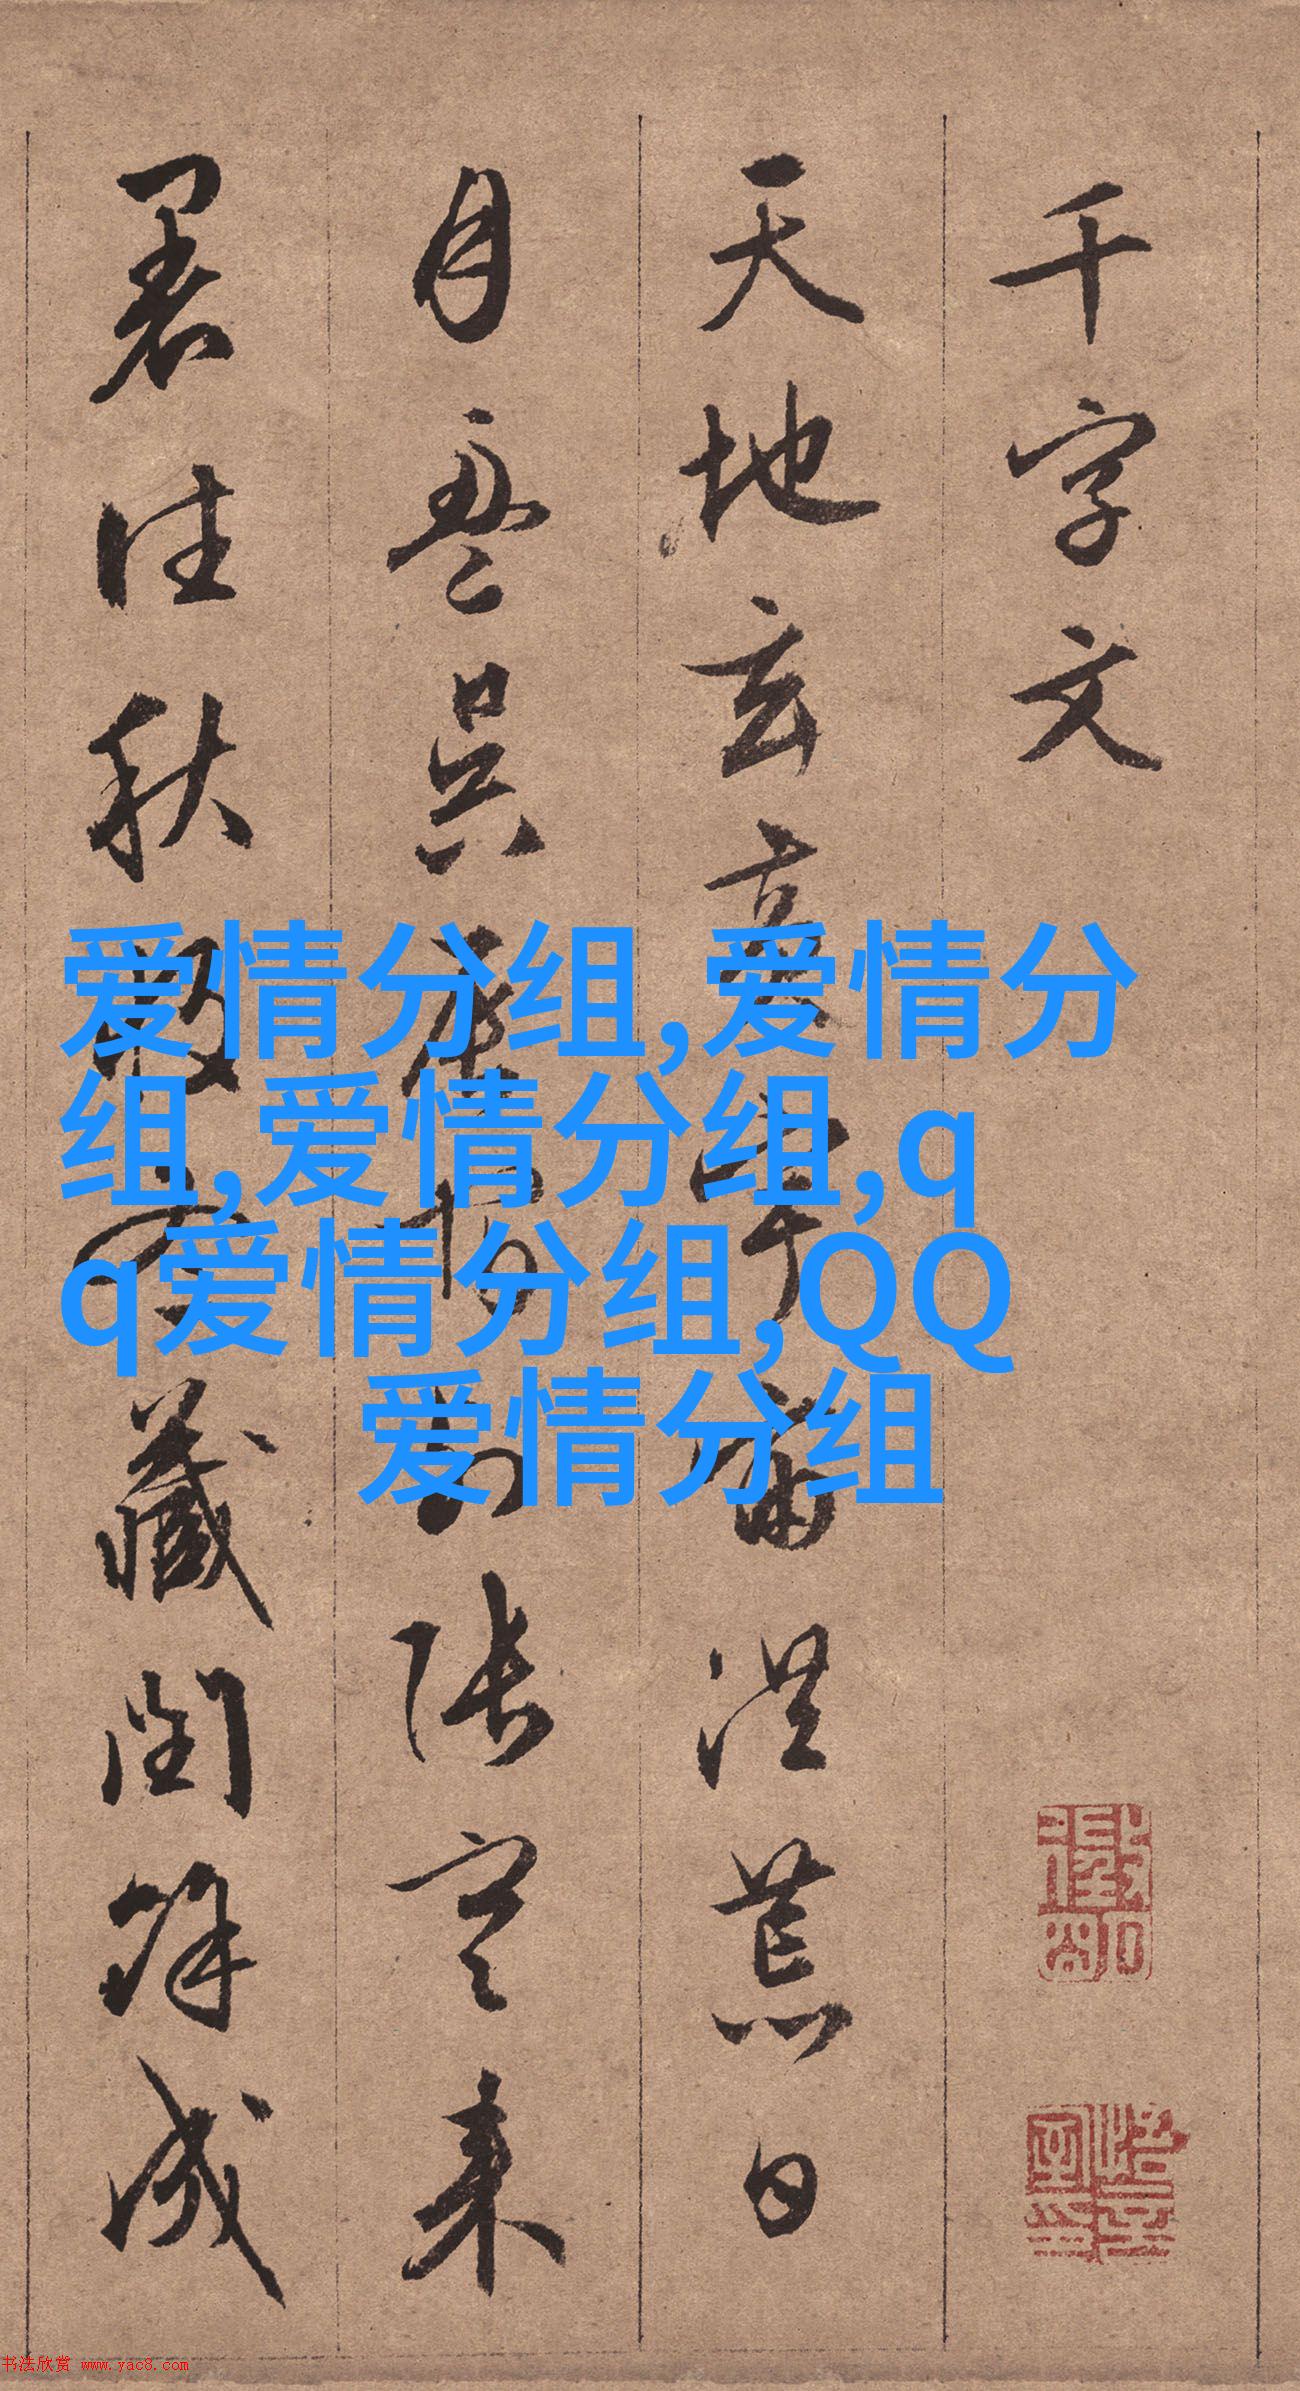 千字文
天地玄黄宇宙洪荒日
月盈昃辰宿列張寒来
暑往秋收冬藏閏餘成
爱情分组,爱情分
组,爱情分组,q
q爱情分组,QQ
爱情分组
书法欣赏 www.yac8.com